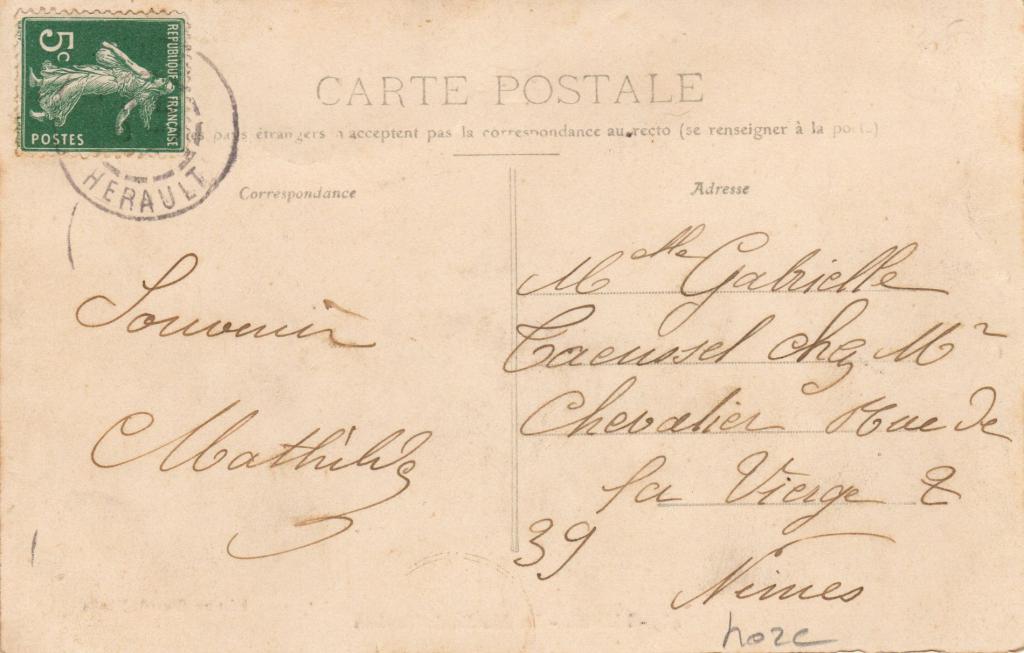 REPUBLIQUE FRANÇAISE
5c
POSTES
HERAULT
CARTE POSTALE
pays étrangers n acceptent pas la correspondance au recto (se renseigner à la poste)
Correspondance
Souvenir
Mathilde
Adresse
Mlle Gabrielle
Taeussel chez Mr
Chevalier Rue de
la Vierge 2
39
Nimes